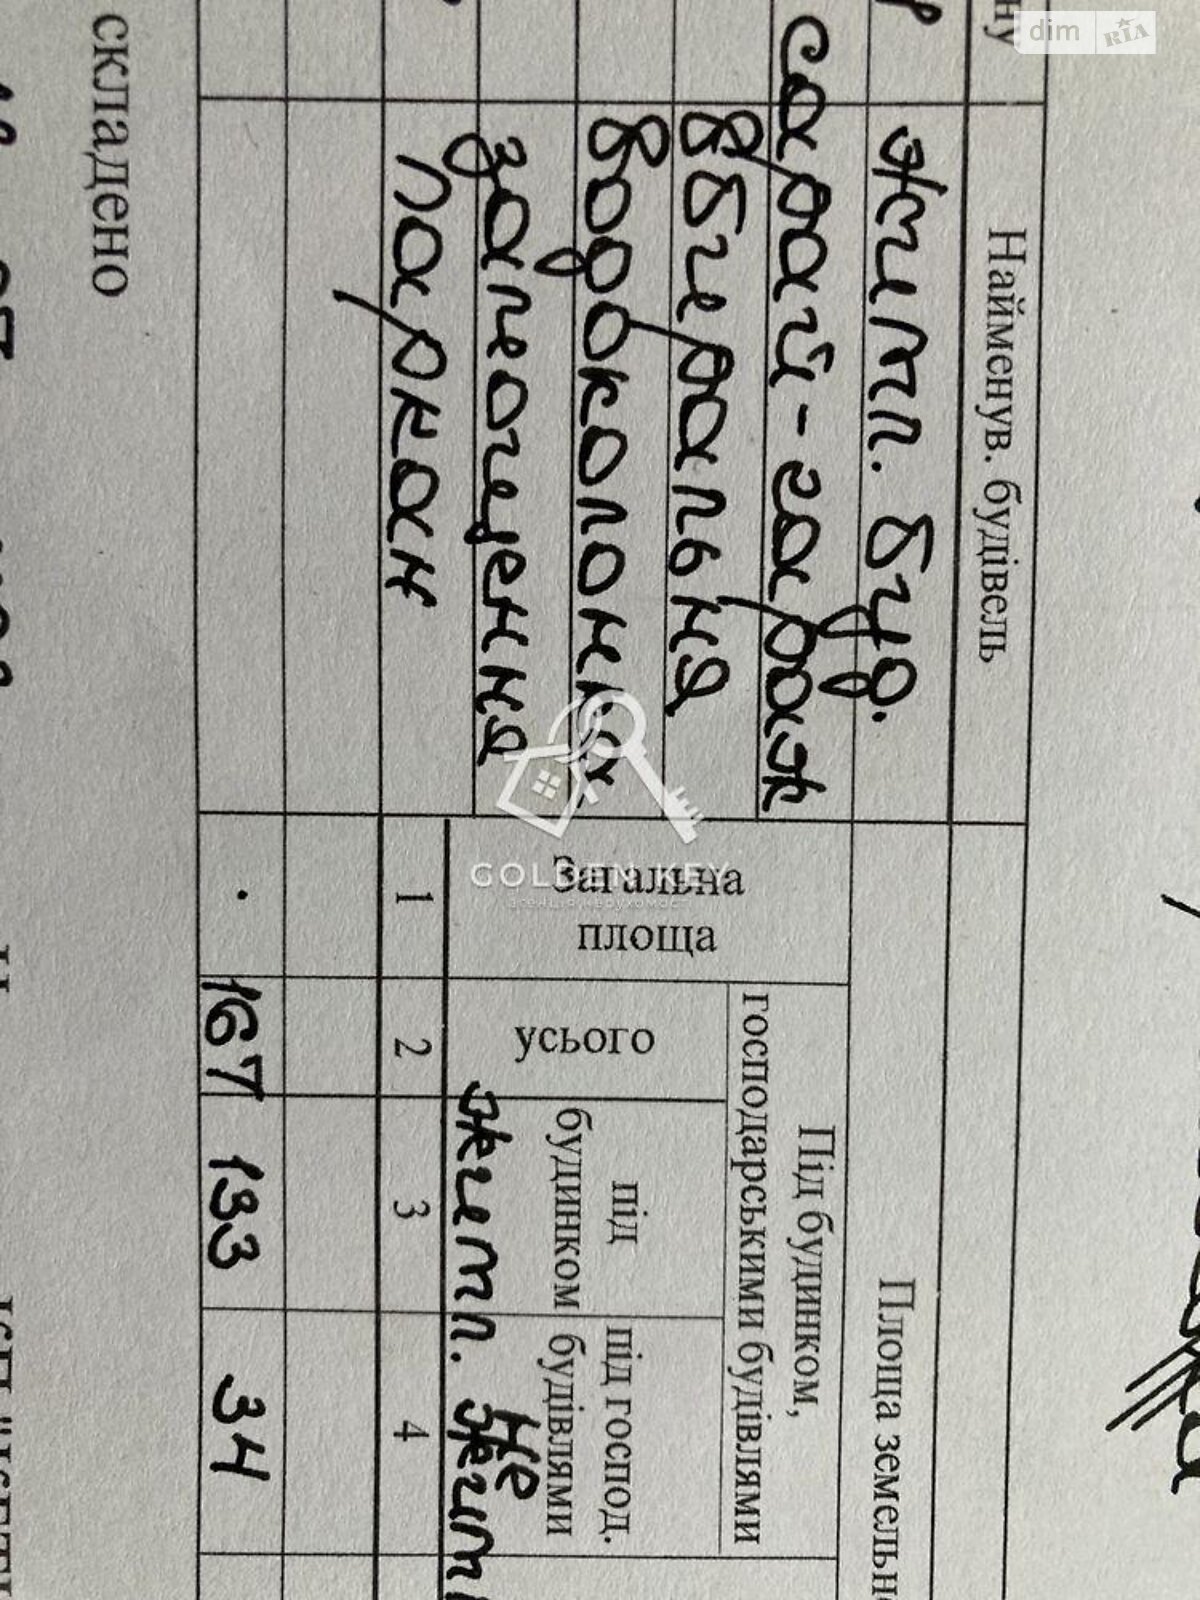 dim RIA
ну
Найменув. будівель
Площа земельн
житл. буд.
сарай-гараж
вбиральня
водоколонка
замощення
паркан
Під будинком,
господарськими будівлями
Загальна
площа
усього
під
будинком
під господ.
будівлями
житл.
не
житл
1
2
3
4
167
133
34
GOLDEN KEY
агенція нерухомості
складено